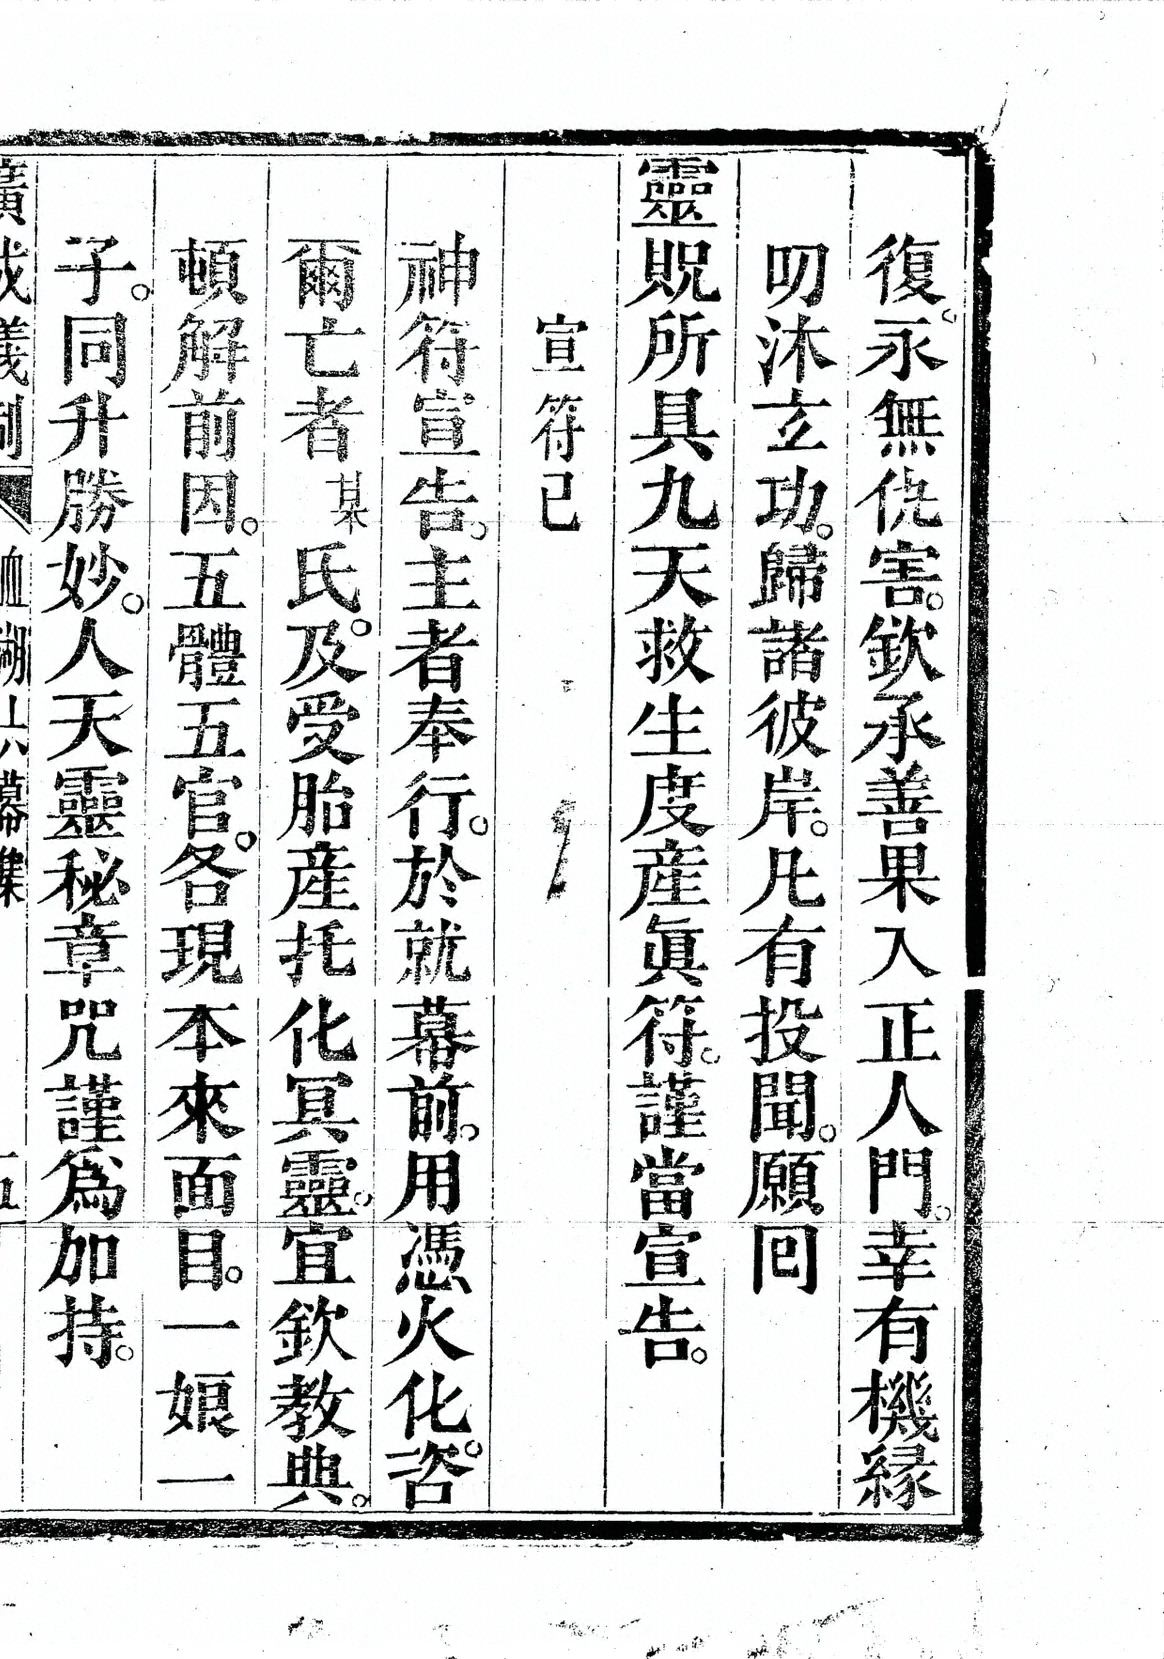 復。永無仇害。欽承善果入正人門。幸有機緣
叨沐玄功。歸諸彼岸。凡有投聞。願回
靈貺所具九天救生度產眞符。謹當宣告。
宣符已
神符宣告。主者奉行。於就幕前。用憑火化。咨
爾亡者某氏。及受胎產托化冥靈。宜欽教典。
頓解前因。五體五官。各現本來面目。一娘一
子。同升勝妙。人天靈秘章咒謹爲加持。
廣成儀制 血湖上六幕集 五